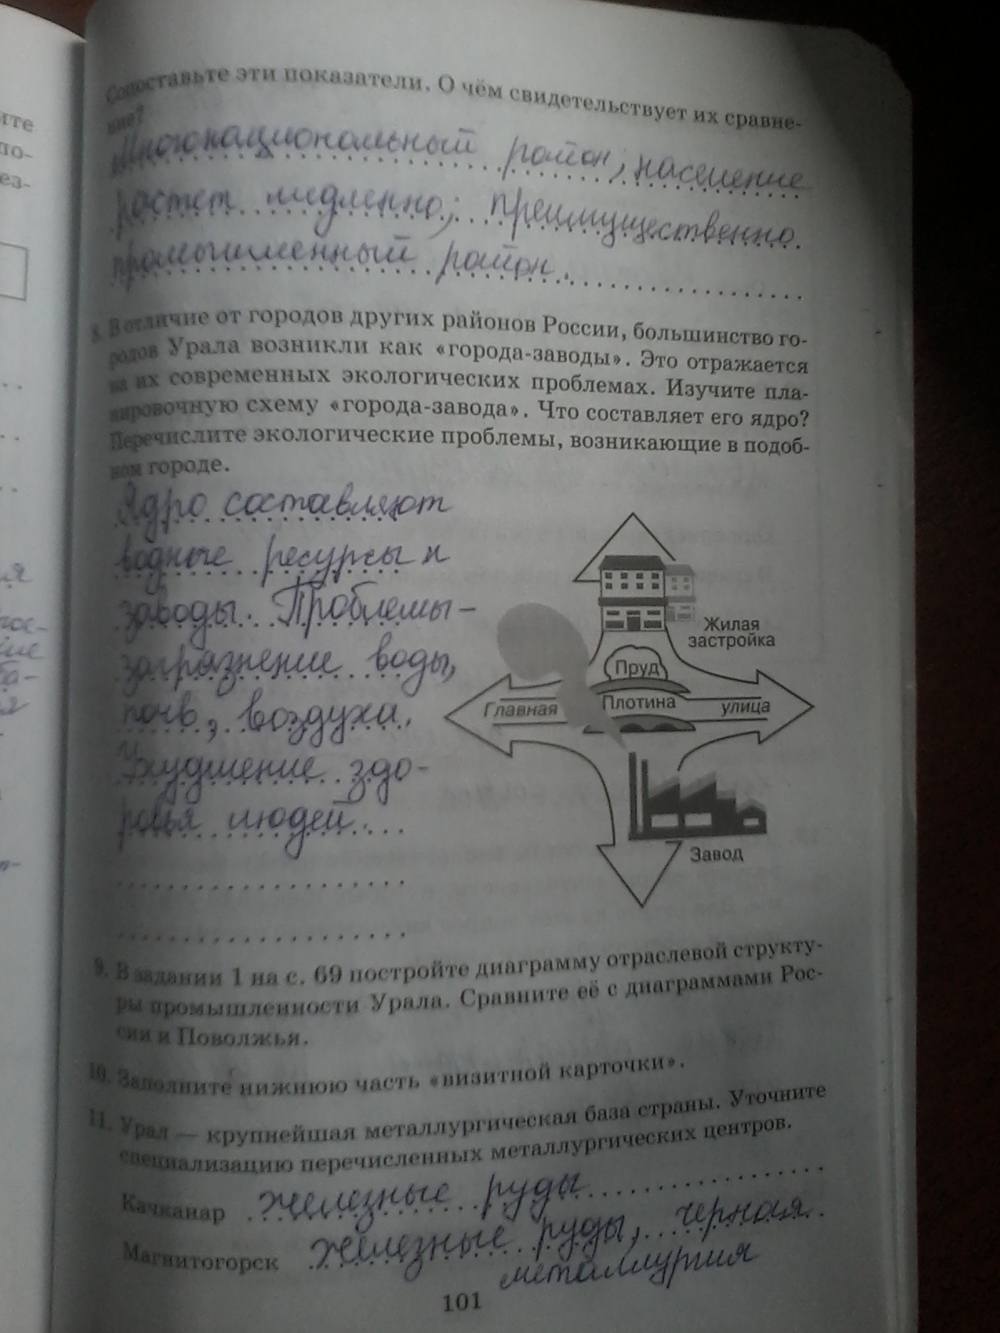 ите
по-
ез-
Сопоставьте эти показатели. О чём свидетельствует их сравне-
ние?
Многонациональный район, население
растет медленно, преимущественно
промышленный район.
8. В отличие от городов других районов России, большинство го-
родов Урала возникли как «города-заводы». Это отражается
на их современных экологических проблемах. Изучите пла-
нировочную схему «города-завода». Что составляет его ядро?
Перечислите экологические проблемы, возникающие в подоб-
ном городе.
Ядро составляют
водные ресурсы и
заводы. Проблемы-
загразнение воды,
почв, воздуха.
Ухудшение здо-
ровья людей
Жилая
застройка
Пруд
Главная
Плотина
улица
Завод
9. В задании 1 на с. 69 постройте диаграмму отраслевой структу-
ры промышленности Урала. Сравните её с диаграммами Рос-
сии и Поволжья.
10. Заполните нижнюю часть «визитной карточки».
11. Урал — крупнейшая металлургическая база страны. Уточните
специализацию перечисленных металлургических центров.
Качканар железные руды
Магнитогорск железные руды, черная
металлургия
101